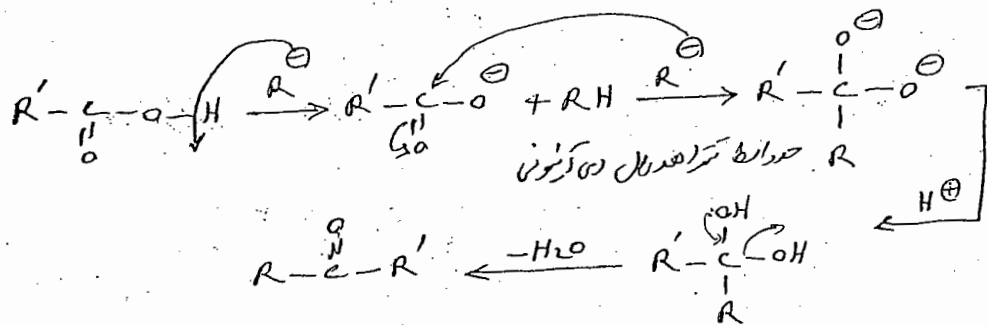 R'–C(=O)–O–H —R⊖→ R'–C(=O)–O⊖ + RH —R⊖→ R'–C(O⊖)(R)–O⊖
حدواسط تتراهدرال دی آنیونی
H⊕
R–C(=O)–R' ←–H2O— R'–C(OH)(R)–OH